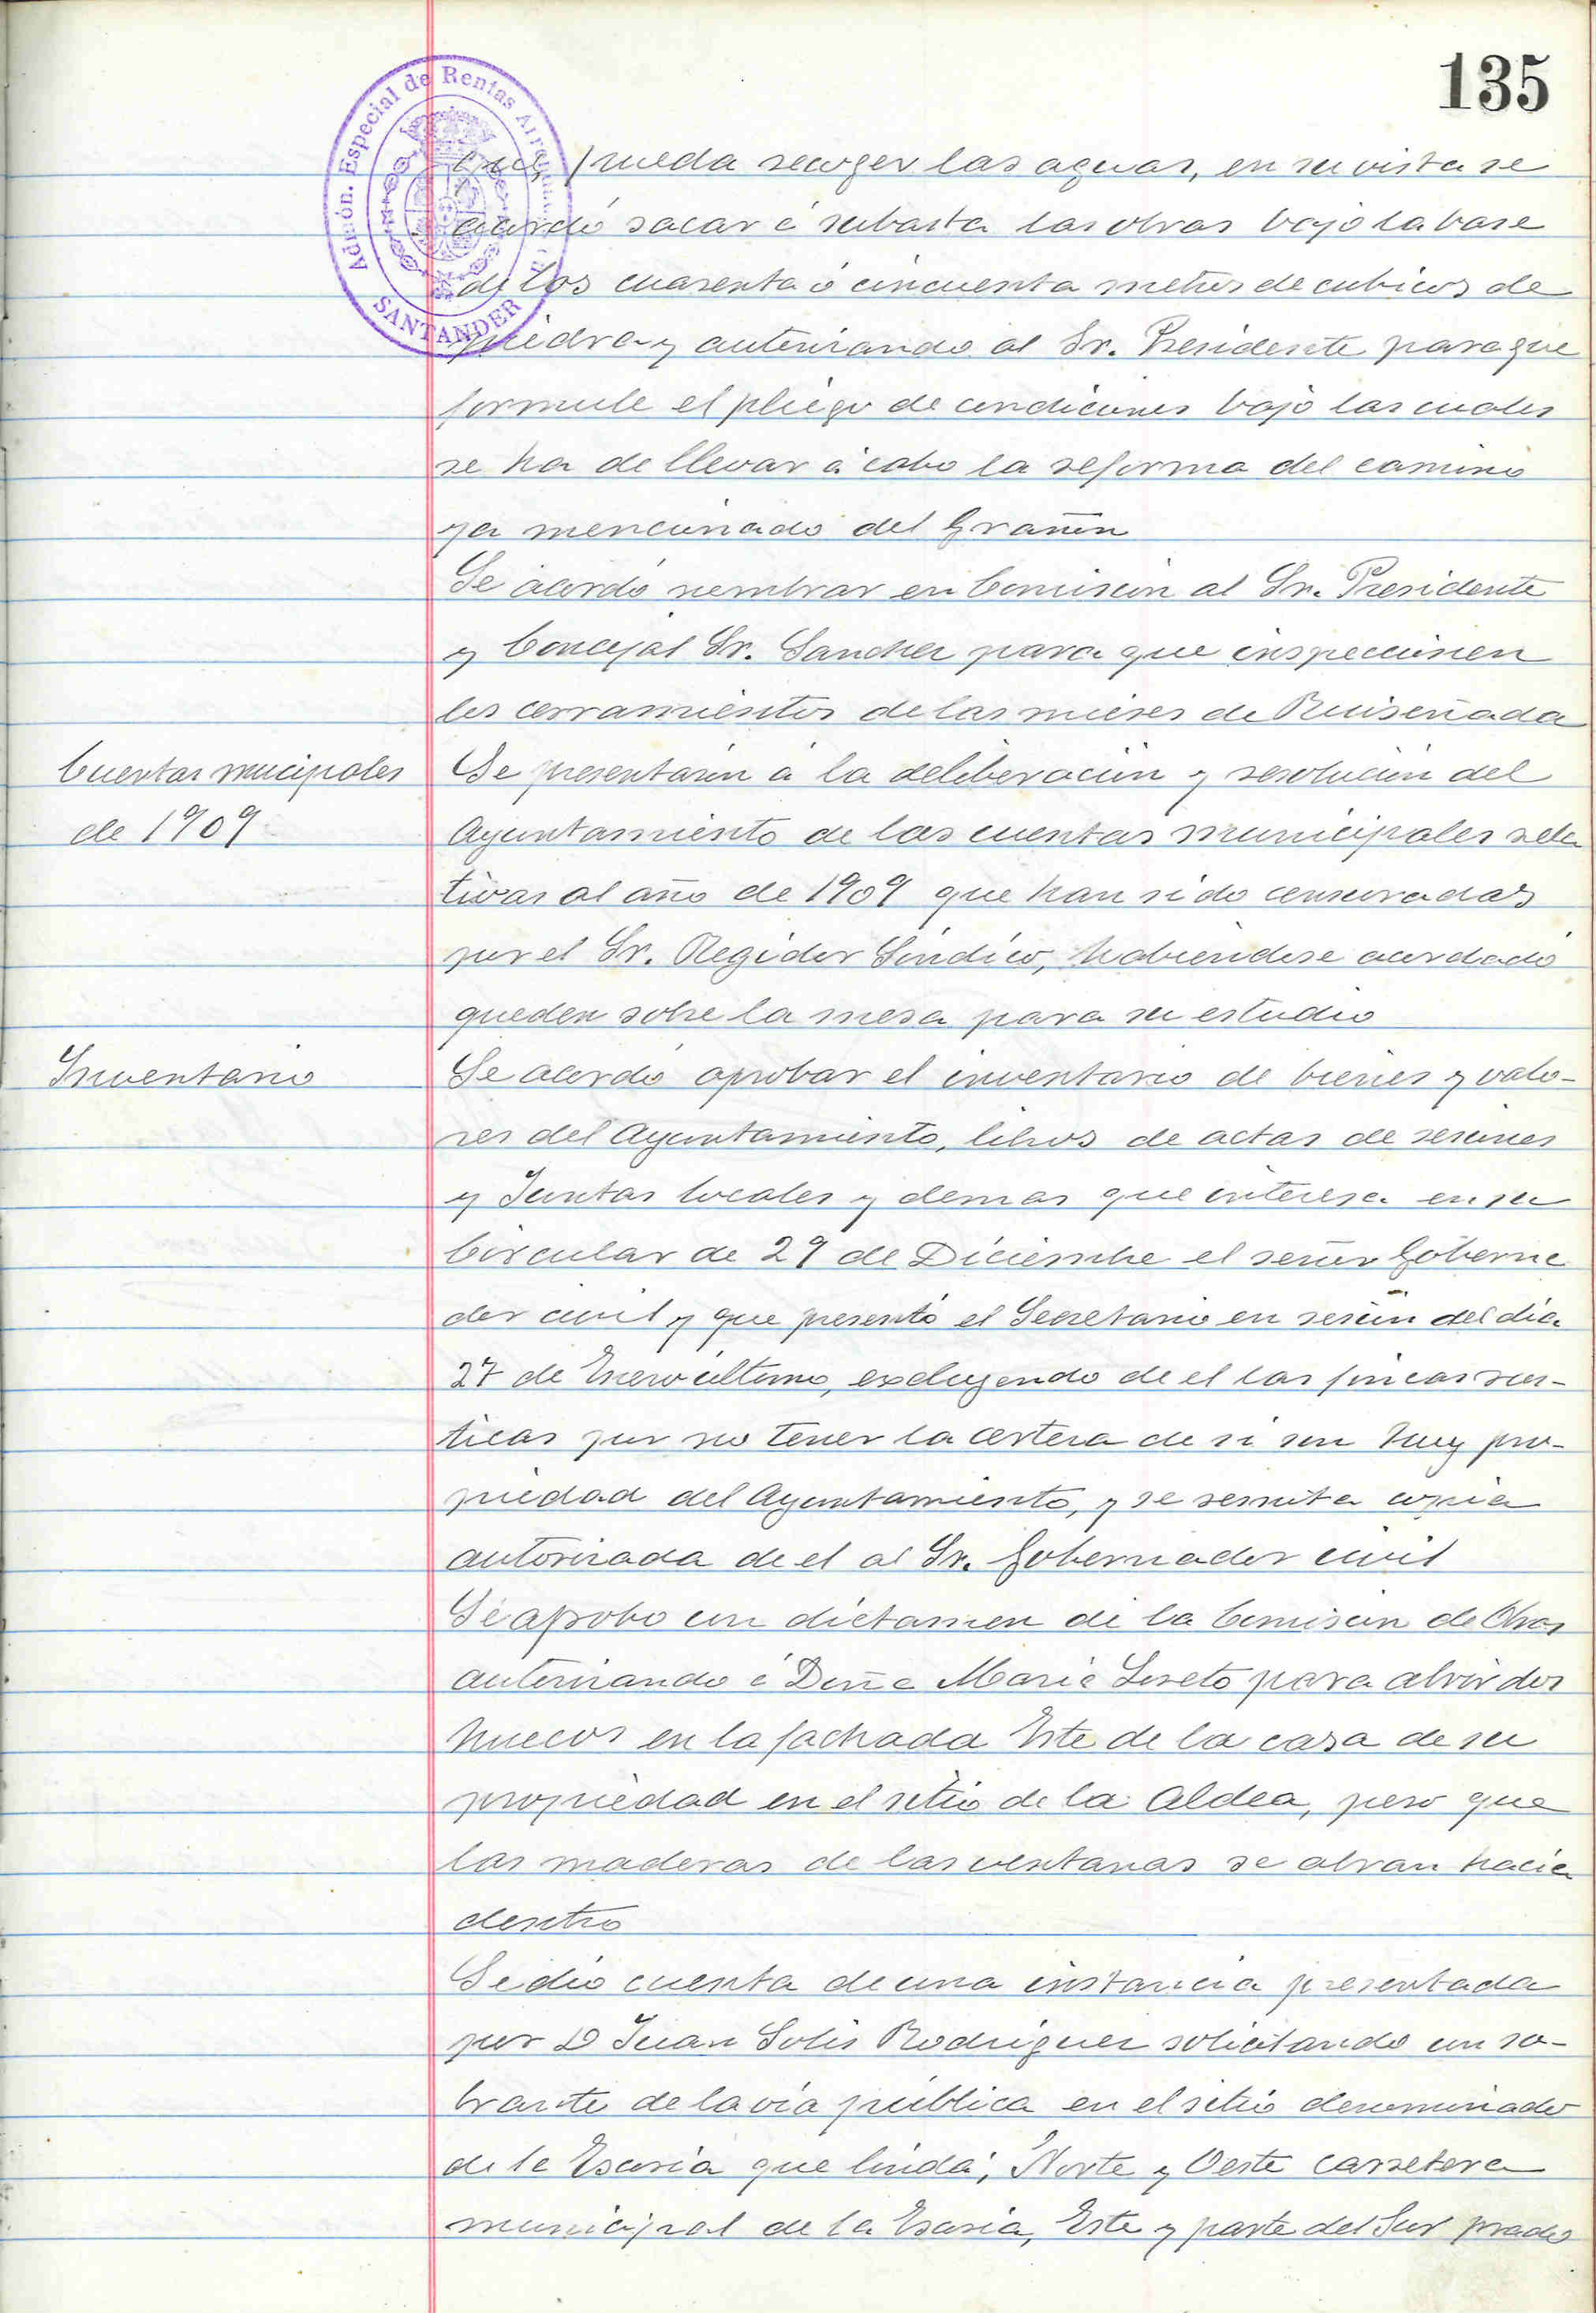 135
Admón. Especial de Rentas Arrendadas
SANTANDER
que pueda recoger las aguas, en su vista se
acordó sacar á subasta las obras bajo la base
de los cuarenta ó cincuenta metros de cubicos de
piedra y autorizando al Sr. Presidente para que
formule el pliego de condiciones bajo las cuales
se ha de llevar á cabo la reforma del camino
ya mencionado del Grañin
Se acordó nombrar en Comisión al Sr. Presidente
y Concejal Sr. Sanchez para que inspeccionen
los cerramientos de las mieses de Ruiseñada
Cuentas mucipales
de 1909
Se presentarón á la deliberación y resolución del
Ayuntamiento de las cuentas municipales rela
tivas al año de 1909 que han sido censuradas
por el Sr. Regidor Síndico, habiendose acordado
queden sobre la mesa para su estudio
Inventario
Se acordó aprobar el inventario de bienes y valo-
res del Ayuntamiento, libros de actas de sesiones
y Juntas locales y demas que interesa en su
Circular de 29 de Diciembre el señor Goberna
dor civil y que presentó el Secretario en sesión del día
27 de Enero último, excluyendo de el las fincas rus-
ticas por no tener la certeza de si son hoy pro-
piedad del Ayuntamiento, y se remita copia
autorizada de el al Sr. Gobernador civil
Se aprobo un dictamen de la Comisión de Obras
autorizando á Doña Maria Loreto para abrir dos
huecos en la fachada Este de la casa de su
propiedad en el sitio de la Aldea, pero que
las maderas de las ventanas se abran hacia
dentro
Se dio cuenta de una instancia presentada
por D Juan Solis Rodriguez solicitando un so-
brante de la vía pública en el sitio denominado
de la Esaria que linda; Norte y Oeste carretera
municipal de la Esaria, Este y parte del Sur prado